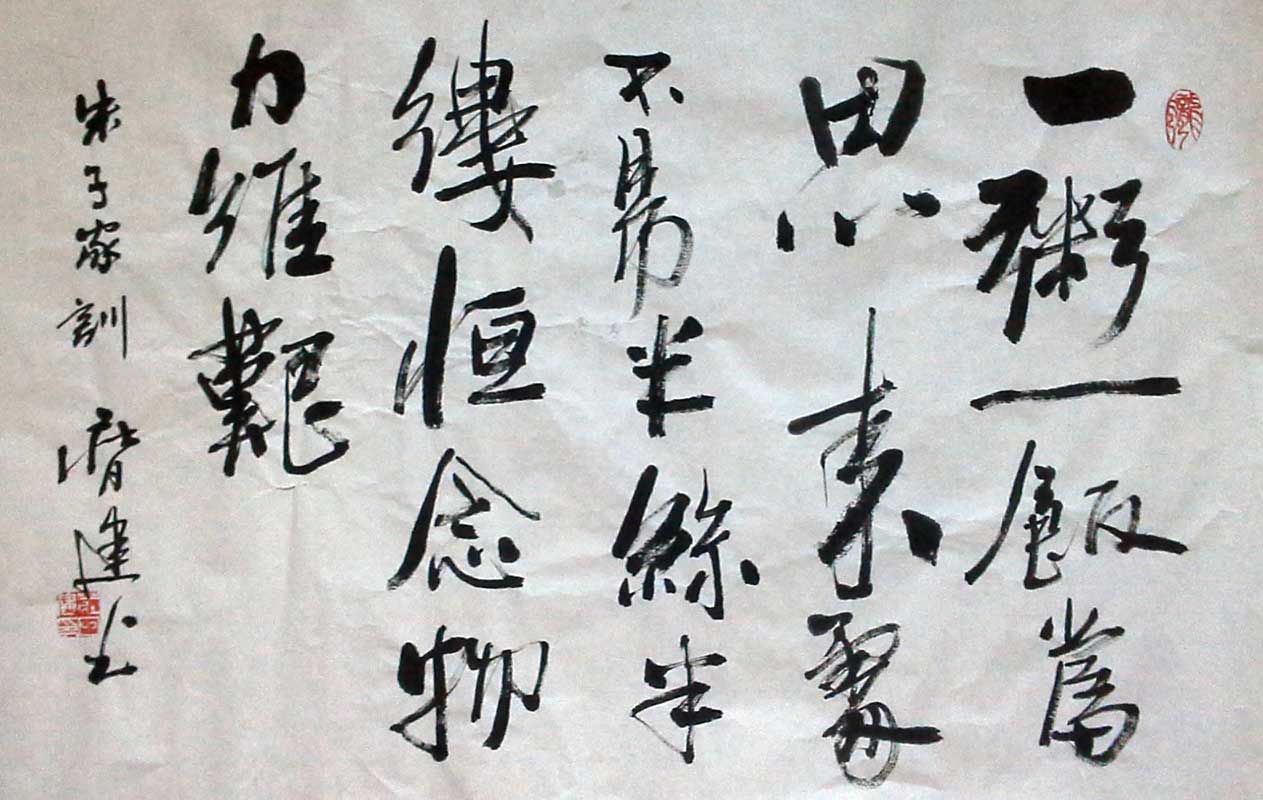 一粥一飯當
思来處
不易半絲半
縷恒念物
力維艱
朱子家訓 建书